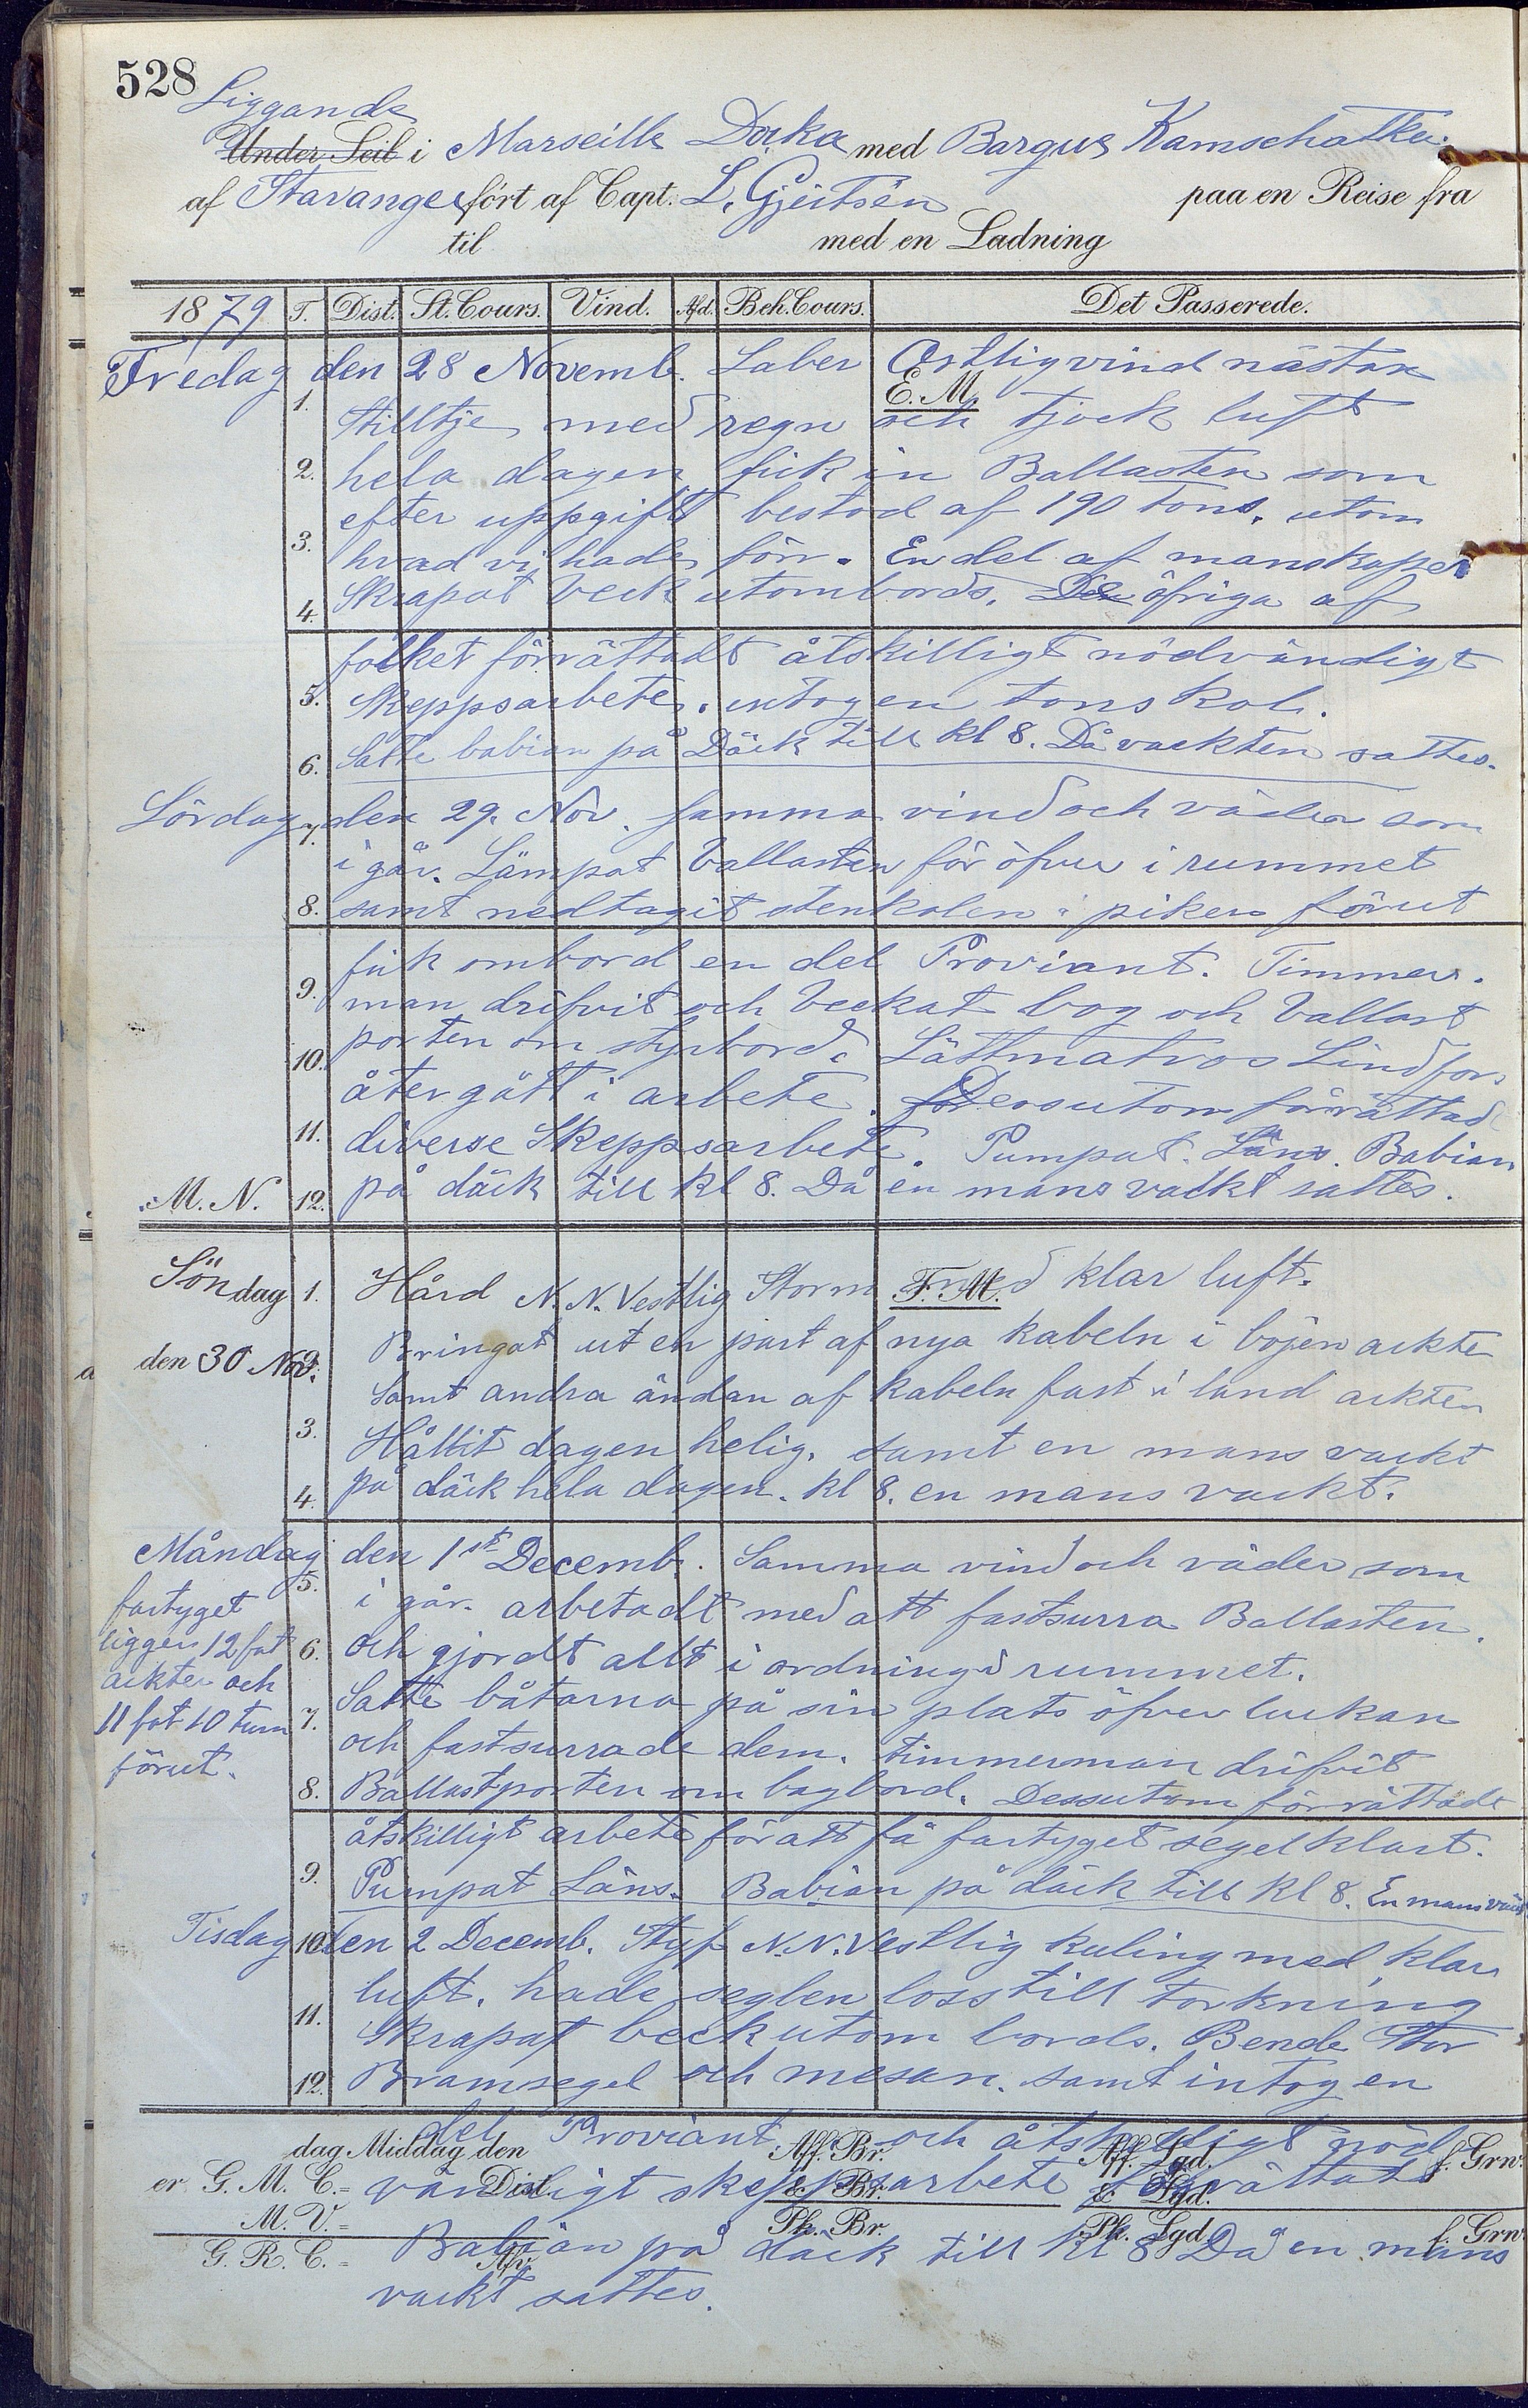 528
Liggande
Under Seil i Marseille Docka med Barque Kamschatka.
af Stavanger fört af Capt. L. Gjertsen paa en Reise fra
til med en Ladning
1879 T. Dist. St. Cours. Vind. Afd. Beh. Cours. Det Passerede.
Fredag den 28 Novemb. Laber Ostlig vind nästan
E. M.
1. Stilltje med regn och tjock luft
2. hela dagen fick in Ballasten som
efter uppgift bestod af 190 tons. utom
3. hvad vi hade förr. En del af manskapet
4. Skrapat beck utombords. De öfriga af
folket förrättadt åtskilligt nödvändigt
5. Skeppsarbete. intog en tons kol.
6. Satte babian på Däck till kl 8. Då vackten sattes.
Lördag den 29. Nov. samma vind och väder som
7. i går. Lämpat ballasten för öfver i rummet
8. samt nedtagit stenkolen i piken förut
fick ombord en del Proviant. Timmer-
9. man drifvit och beckat bog och ballast
10. porten om styrbord. Lättmatros Lindfors
åter gått i arbete. Dessutom förrättad
11. diverse Skeppsarbete. Pumpat Läns. Babian
M. N. 12. på däck till kl 8. Då en mans vackt sattes.
Söndag 1. Hård N. N. Vestlig Storm med klar luft.
F. M.
den 30 Nov. 2. Bringat ut en part af nya kabeln i bojen ackter
samt andra ändan af kabeln fast i land ackter
3. Hållit dagen helig. samt en mans vackt
4. på däck hela dagen. kl 8. en mans vackt.
Måndag den 1st Decemb. Samma vind och väder som
5. i går. arbetadt med att fastsurra Ballasten.
fartyget
ligger 12 fot
ackter och
11 fot 10 tum
förut.
6. och gjordt allt i ordning i rummet.
7. Satte båtarna på sin plats öfver luckan
och fastsurrade dem. timmerman drifvit
8. Ballastporten om bagbord. Dessutom förrättade
åtskilligt arbete för att få fartyget segelklart.
9. Pumpat Läns. Babian på däck till kl 8. En mans vackt
Tisdag 10. den 2 Decemb. Styf N. N. Vestlig kuling med klar
luft. hade seglen loss till torkning
11. Skrapat beck utom bords. Bende Stor
12. Bramsegel och mesan. samt intog en
del Proviant. och åtskilligt nöd
dag Middag den Aff. Br. Aff. Lgd. f. Grw.
vändigt skeppsarbete förrättats
er G. M. C. = Dist. & Br. & Lgd.
M. V. = Ph. Br. Ph. Lgd. f. Grw.
Babian på däck till kl 8 Då en mans
G. R. C. = Afv.
vackt sattes.